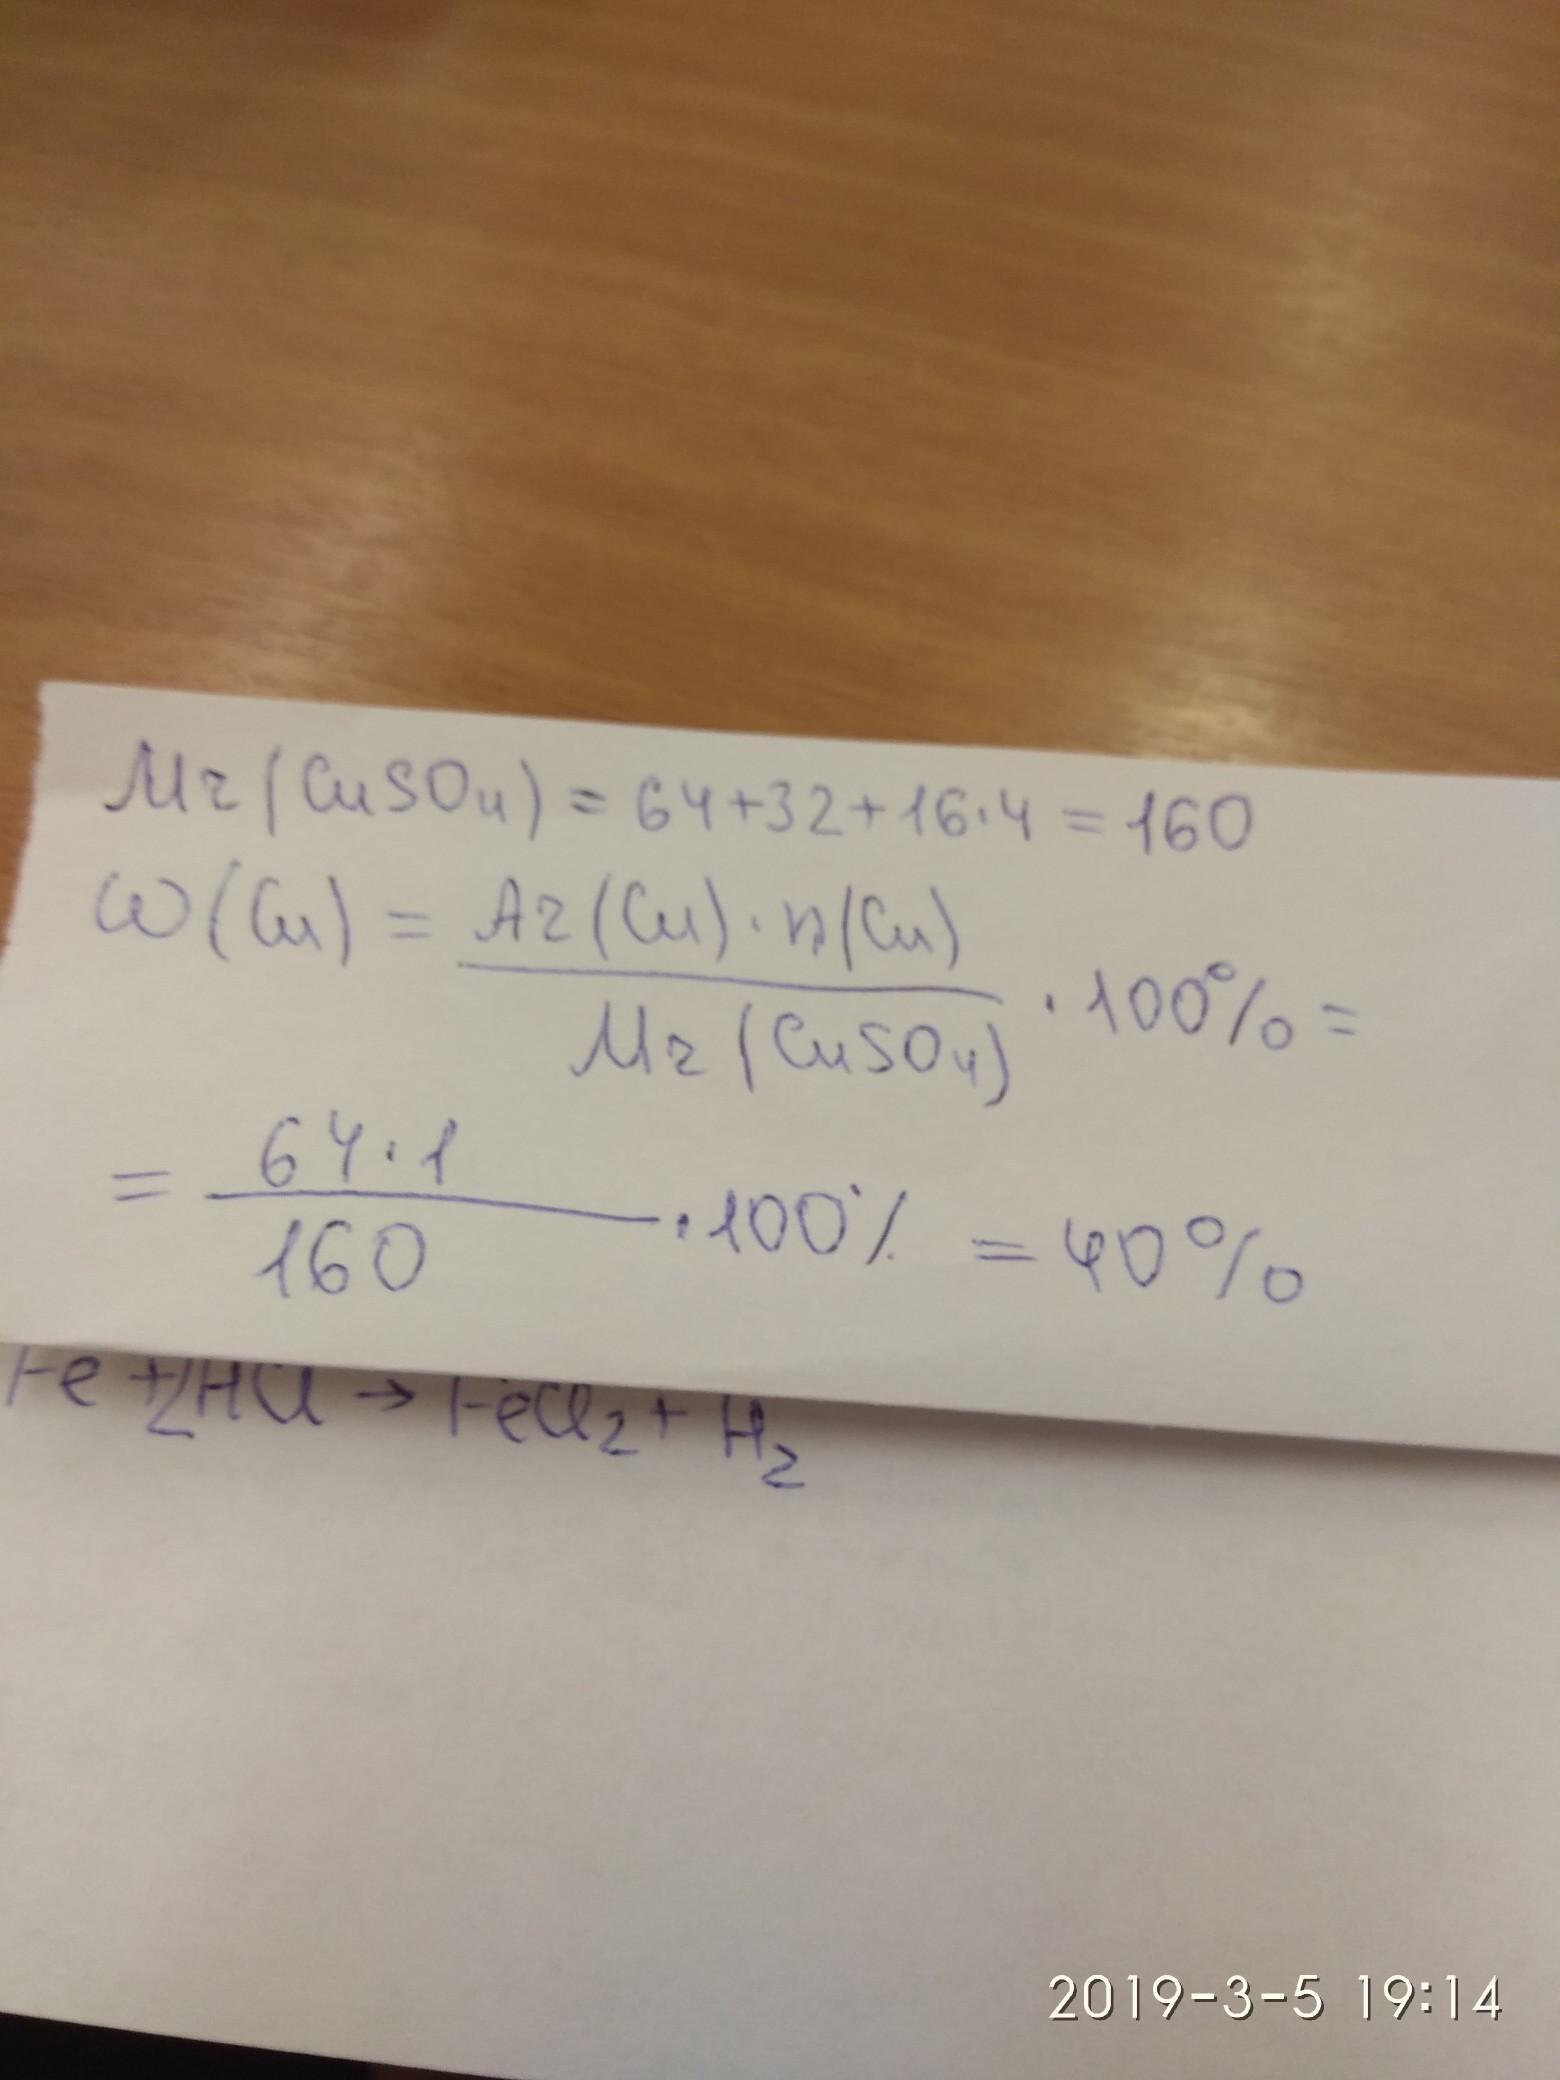 Mr(CuSO₄) = 64+32+16·4 = 160
ω(Cu) = Ar(Cu)·n(Cu) / Mr(CuSO₄) · 100% =
= 64·1 / 160 · 100% = 40%
Fe + 2HCl → FeCl₂ + H₂
2019-3-5 19:14